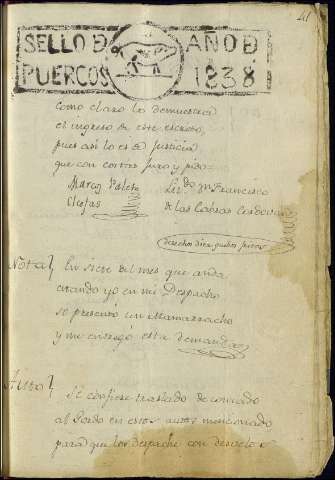 41
SELLO D AÑO D
PUERCOS 1838
como claro lo demuestra
el ingreso de este escrito,
pues así lo es de Justicia
que con costas juro y pido
Marcos Paleta Licdo Mn Francisco
Clejas de las Cabras Cordovan
derechos diez quatro pesos
Nota En siete del mes que anda
estando yo en mi Despacho
se presentó un Mamarracho
y me entregó esta demanda
Auto Se confiere traslado de contado
al Gordo en estos autos mencionado
para que los despache con desvelo